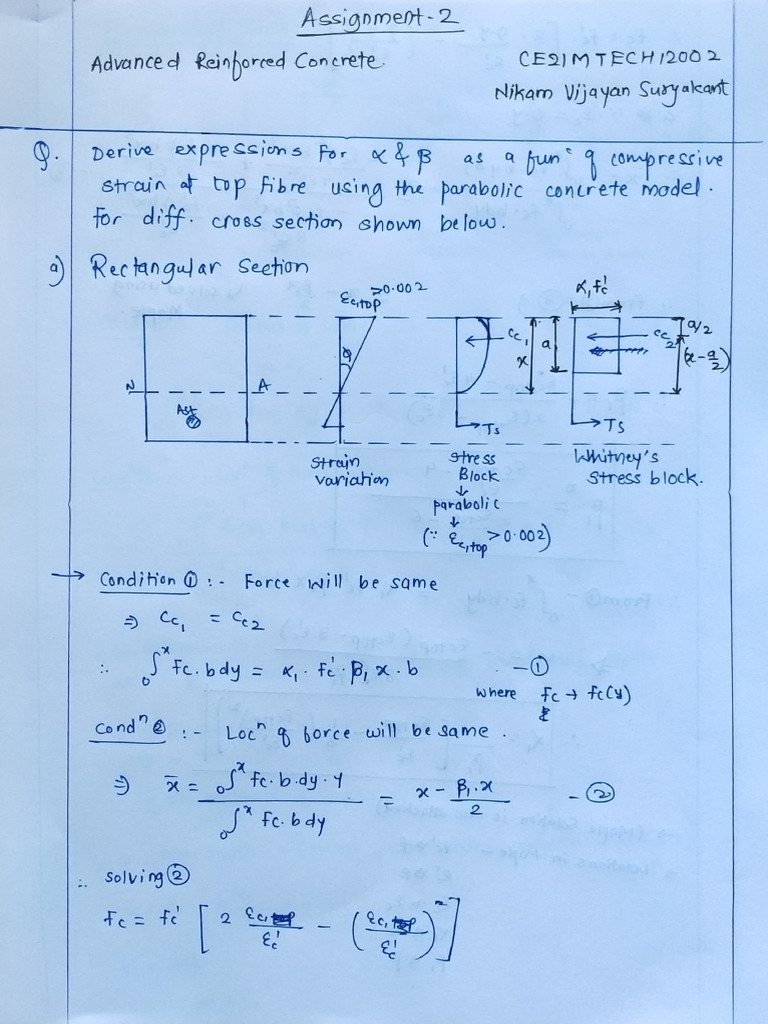 Assignment-2
Advanced Reinforced Concrete.
CE21MTECH12002
Nikam Vijayan Suryakant
Q. Derive expressions for α & β as a funᶜ of compressive
strain at top fibre using the parabolic concrete model.
for diff. cross section shown below.
a) Rectangular Section
εc,top >0.002
α₁fc'
N
A
Ast
φ
Cc₁
x
a
Cc₂
a/2
(x - a/2)
Ts
Ts
Strain variation
Stress Block
↓
parabolic
↓
(∵ εc,top > 0.002)
Whitney's
Stress block.
→ Condition ① :- Force will be same
⇒ Cc₁ = Cc2
∴ ₀∫ˣ fc. bdy = α₁. fc'. β₁ x. b -①
where fc → fc(y)
Condⁿ ② :- Locⁿ of force will be same.
⇒ x̄ = ₀∫ˣ fc. b. dy. y / ₀∫ˣ fc. bdy = x - β₁.x / 2 -②
∴ solving ②
fc = fc' [ 2 εc / εc' - ( εc / εc' )² ]